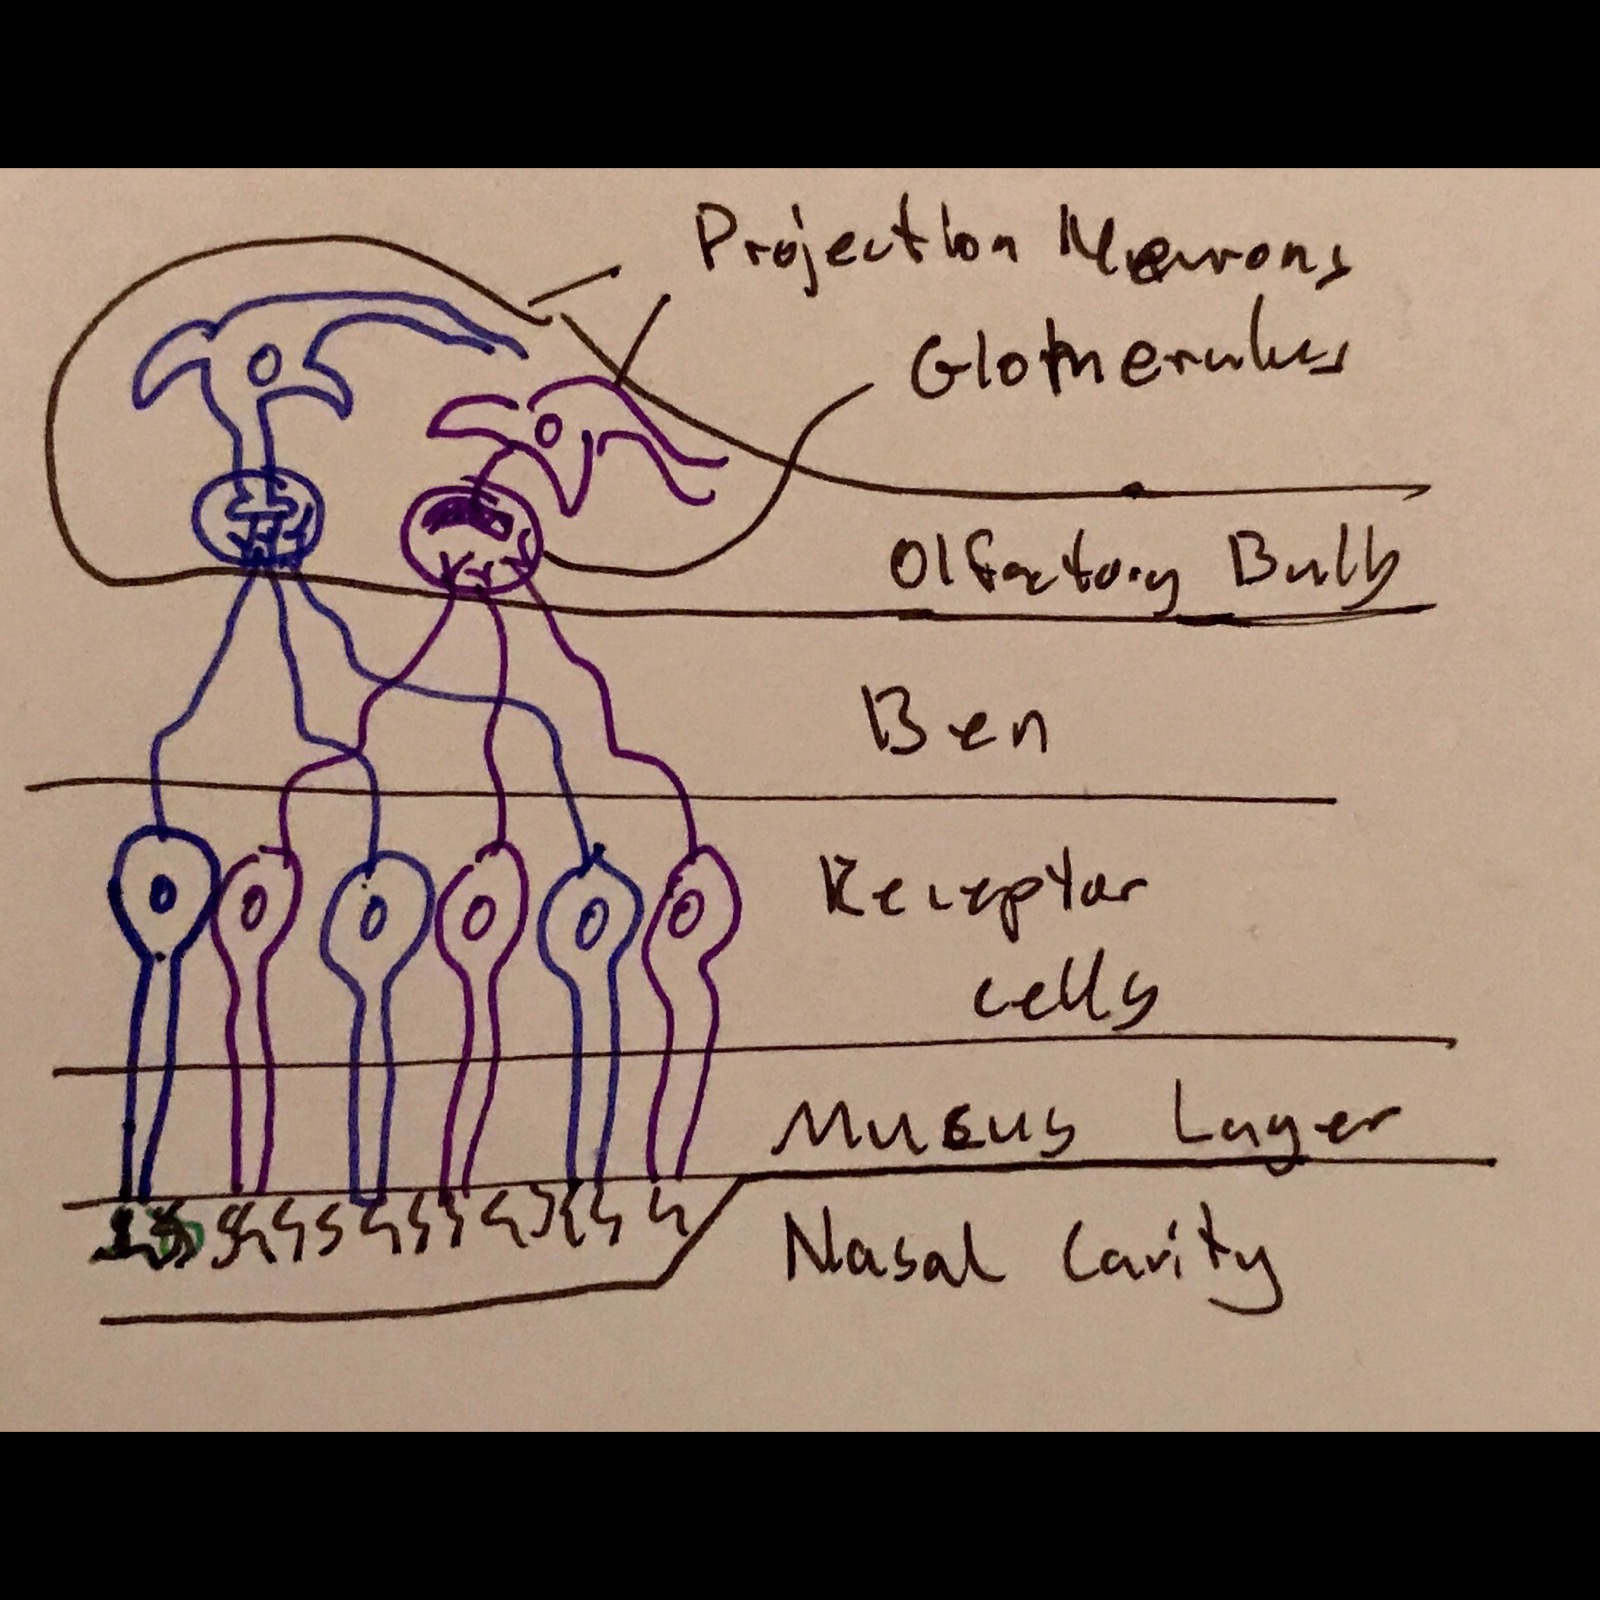 Projection Neurons
Glomerulus
Olfactory Bulb
Ben
Receptor
cells
Mucus Layer
Nasal Cavity